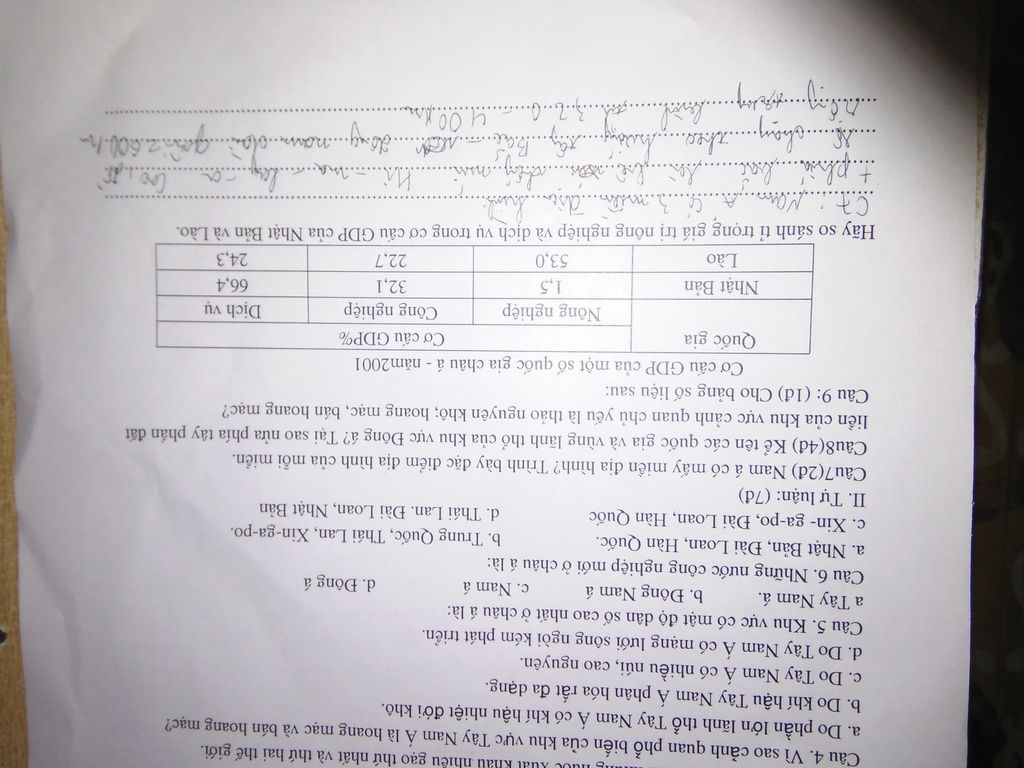 nước xuất khẩu nhiều gạo thứ nhất và thứ hai thế giới.
Câu 4. Vì sao cảnh quan phổ biến của khu vực Tây Nam Á là hoang mạc và bán hoang mạc?
a. Do phần lớn lãnh thổ Tây Nam Á có khí hậu nhiệt đới khô.
b. Do khí hậu Tây Nam Á phân hóa rất đa dạng.
c. Do Tây Nam Á có nhiều núi, cao nguyên.
d. Do Tây Nam Á có mạng lưới sông ngòi kém phát triển.
Câu 5. Khu vực có mật độ dân số cao nhất ở châu á là:
a Tây Nam á. b. Đông Nam á c. Nam á d. Đông á
Câu 6. Những nước công nghiệp mới ở châu á là:
a. Nhật Bản, Đài Loan, Hàn Quốc. b. Trung Quốc, Thái Lan, Xin-ga-po.
c. Xin- ga-po, Đài Loan, Hàn Quốc d. Thái Lan. Đài Loan, Nhật Bản
II. Tự luận: (7đ)
Câu7(2đ) Nam á có mấy miền địa hình? Trình bày đặc điểm địa hình của mỗi miền.
Câu8(4đ) Kể tên các quốc gia và vùng lãnh thổ của khu vực Đông á? Tại sao nửa phía tây phần đất
liền của khu vực cảnh quan chủ yếu là thảo nguyên khô, hoang mạc, bán hoang mạc?
Câu 9: (1đ) Cho bảng số liệu sau:
Cơ cấu GDP của một số quốc gia châu á - năm2001
Quốc gia Cơ cấu GDP%
Nông nghiệp Công nghiệp Dịch vụ
Nhật Bản 1,5 32,1 66,4
Lào 53,0 22,7 24,3
Hãy so sánh tỉ trọng giá trị nông nghiệp và dịch vụ trong cơ cấu GDP của Nhật Bản và Lào.
C7: Nam Á có 3 miền địa hình
+ phía bắc là hệ thống núi Hi - ma - lay - a
chạy theo hướng tây Bắc - đông nam dài gần 2600
rộng trung bình 320 - 400 km